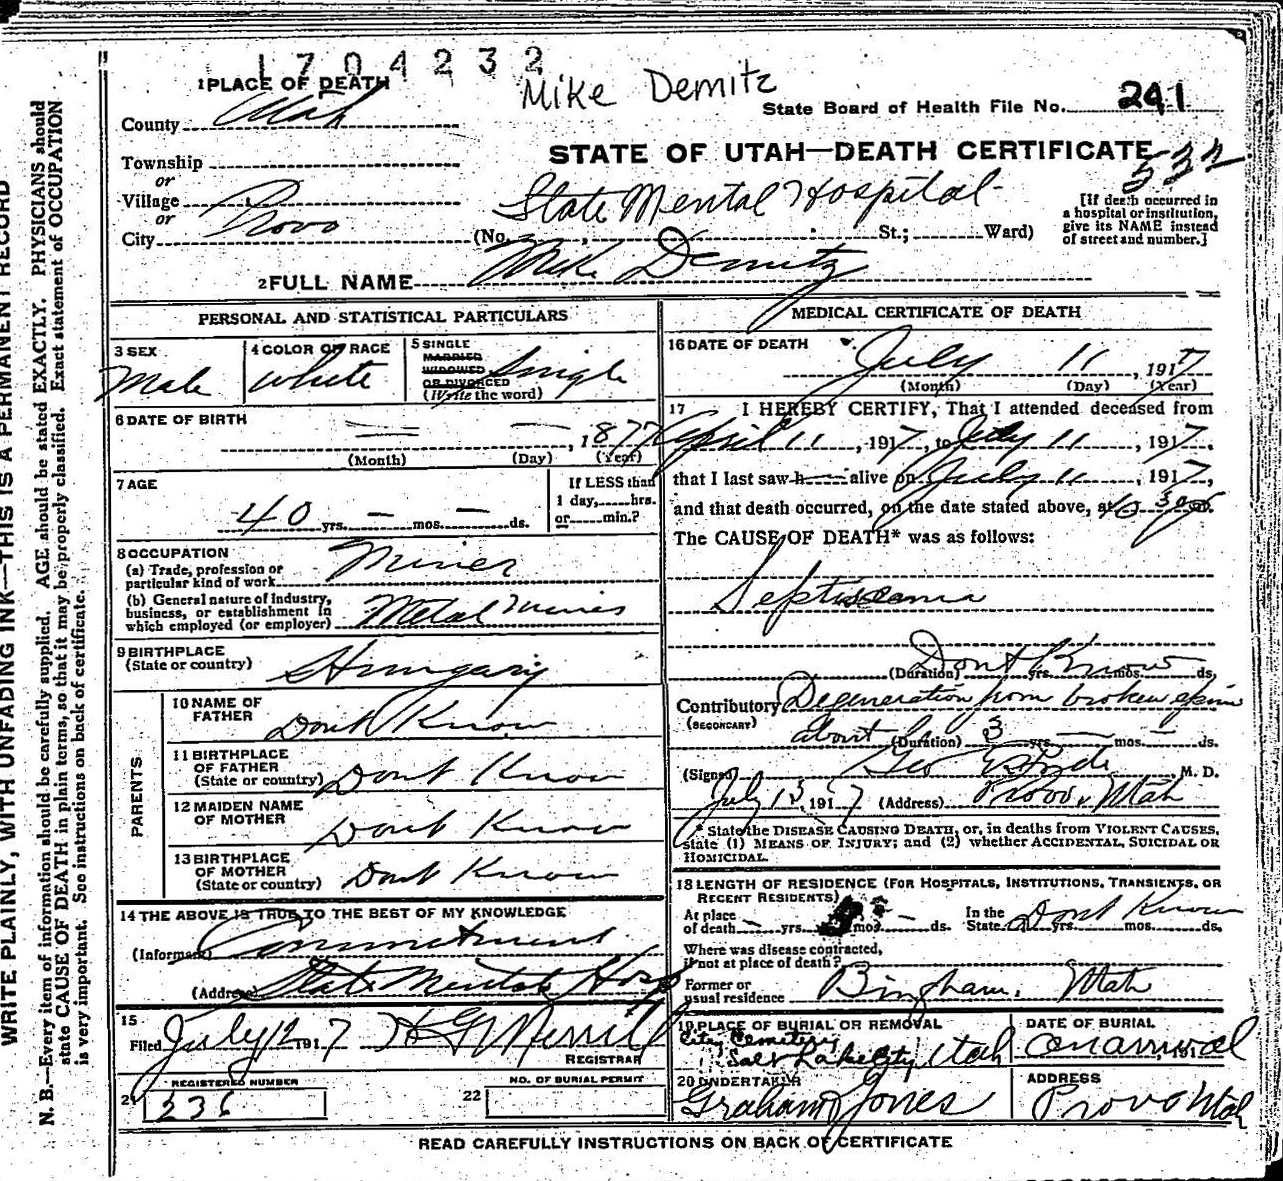 1704232
Mike Demitz
State Board of Health File No. 241
STATE OF UTAH—DEATH CERTIFICATE
532
1 PLACE OF DEATH
County Utah
Township
or
Village
or
City Provo
State Mental Hospital
(No. St.; Ward)
[If death occurred in
a hospital or institution,
give its NAME instead
of street and number.]
2 FULL NAME Mike Demitz
PERSONAL AND STATISTICAL PARTICULARS
3 SEX
Male
4 COLOR OR RACE
White
5 SINGLE
MARRIED
WIDOWED
OR DIVORCED
(Write the word)
Single
6 DATE OF BIRTH
— — , 1877
(Month) (Day) (Year)
7 AGE
40 yrs. — mos. — ds.
If LESS than
1 day, hrs.
or min.?
8 OCCUPATION
(a) Trade, profession or
particular kind of work Miner
(b) General nature of industry,
business, or establishment in
which employed (or employer) Metal Mines
9 BIRTHPLACE
(State or country) Hungary
PARENTS
10 NAME OF
FATHER Dont Know
11 BIRTHPLACE
OF FATHER
(State or country) Dont Know
12 MAIDEN NAME
OF MOTHER Dont Know
13 BIRTHPLACE
OF MOTHER
(State or country) Dont Know
14 THE ABOVE IS TRUE TO THE BEST OF MY KNOWLEDGE
(Informant) Commetment
(Address) State Mental Hosp
15
Filed July 12 1917 H G Merrill
REGISTRAR
REGISTERED NUMBER
21 236
NO. OF BURIAL PERMIT
22
MEDICAL CERTIFICATE OF DEATH
16 DATE OF DEATH
July 11, 1917
(Month) (Day) (Year)
17 I HEREBY CERTIFY, That I attended deceased from
April 11, 1917, to July 11, 1917,
that I last saw h alive on July 11, 1917,
and that death occurred, on the date stated above, at 10 30
The CAUSE OF DEATH* was as follows:
Septicemia
(Duration) Dont Know yrs. mos. ds.
Contributory Degeneration from broken spine
(SECONDARY)
about (Duration) 3 yrs. — mos. — ds.
(Signed) Geo E Hyde M. D.
July 13, 1917 (Address) Provo, Utah
* State the DISEASE CAUSING DEATH, or, in deaths from VIOLENT CAUSES,
state (1) MEANS OF INJURY; and (2) whether ACCIDENTAL, SUICIDAL OR
HOMICIDAL.
18 LENGTH OF RESIDENCE (FOR HOSPITALS, INSTITUTIONS, TRANSIENTS, OR
RECENT RESIDENTS)
At place
of death — yrs. mos. — ds.
In the
State Dont Know yrs. mos. ds.
Where was disease contracted,
if not at place of death?
Former or
usual residence Bingham, Utah
19 PLACE OF BURIAL OR REMOVAL
City Cemetery
Salt Lake City, Utah
DATE OF BURIAL
On arrival, 191
20 UNDERTAKER
Graham Jones
ADDRESS
Provo Utah
READ CAREFULLY INSTRUCTIONS ON BACK OF CERTIFICATE
WRITE PLAINLY, WITH UNFADING INK—THIS IS A PERMANENT RECORD
N. B.—Every item of information should be carefully supplied. AGE should be stated EXACTLY. PHYSICIANS should
state CAUSE OF DEATH in plain terms, so that it may be properly classified. Exact statement of OCCUPATION
is very important. See instructions on back of certificate.